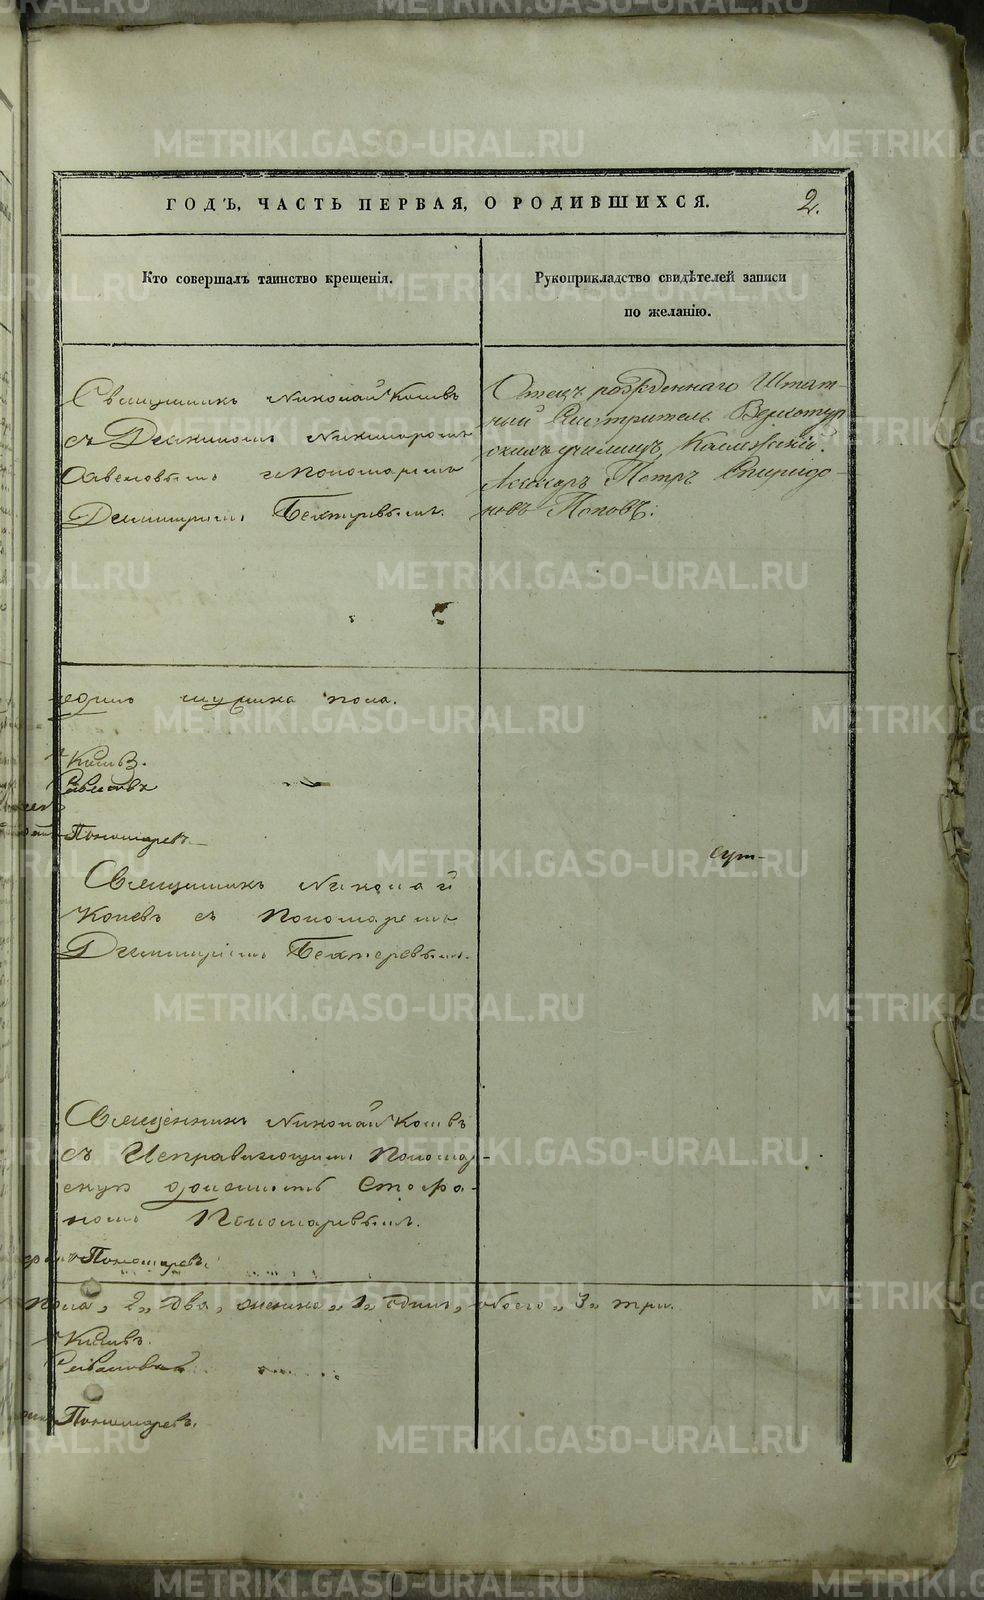 ГОДЪ, ЧАСТЬ ПЕРВАЯ, О РОДИВШИХСЯ.
2.
Кто совершалъ таинство крещенія.
Рукоприкладство свидѣтелей записи
по желанію.
Священникъ Николай Коневъ
съ
Пономаремъ
Димитріемъ Бехтеревымъ.
Отецъ рожденнаго Штат-
ный Смотритель Верхотур-
скихъ училищъ, Коллежскій
Ассесоръ Петръ Спиридо-
новъ Поповъ.
единъ мужеска пола.
Коневъ.
Пономаревъ
Священникъ Николай
Коневъ съ Пономаремъ
Димитріемъ Бехтеревымъ.
Священникъ Николай Коневъ
съ Исправляющимъ Пономар-
скую должность Стефа-
номъ Пономаревымъ.
Пономаревъ.
пола, 2, два, женска, 1, единъ, обоего, 3, три.
Коневъ.
Пономаревъ.
METRIKI.GASO-URAL.RU